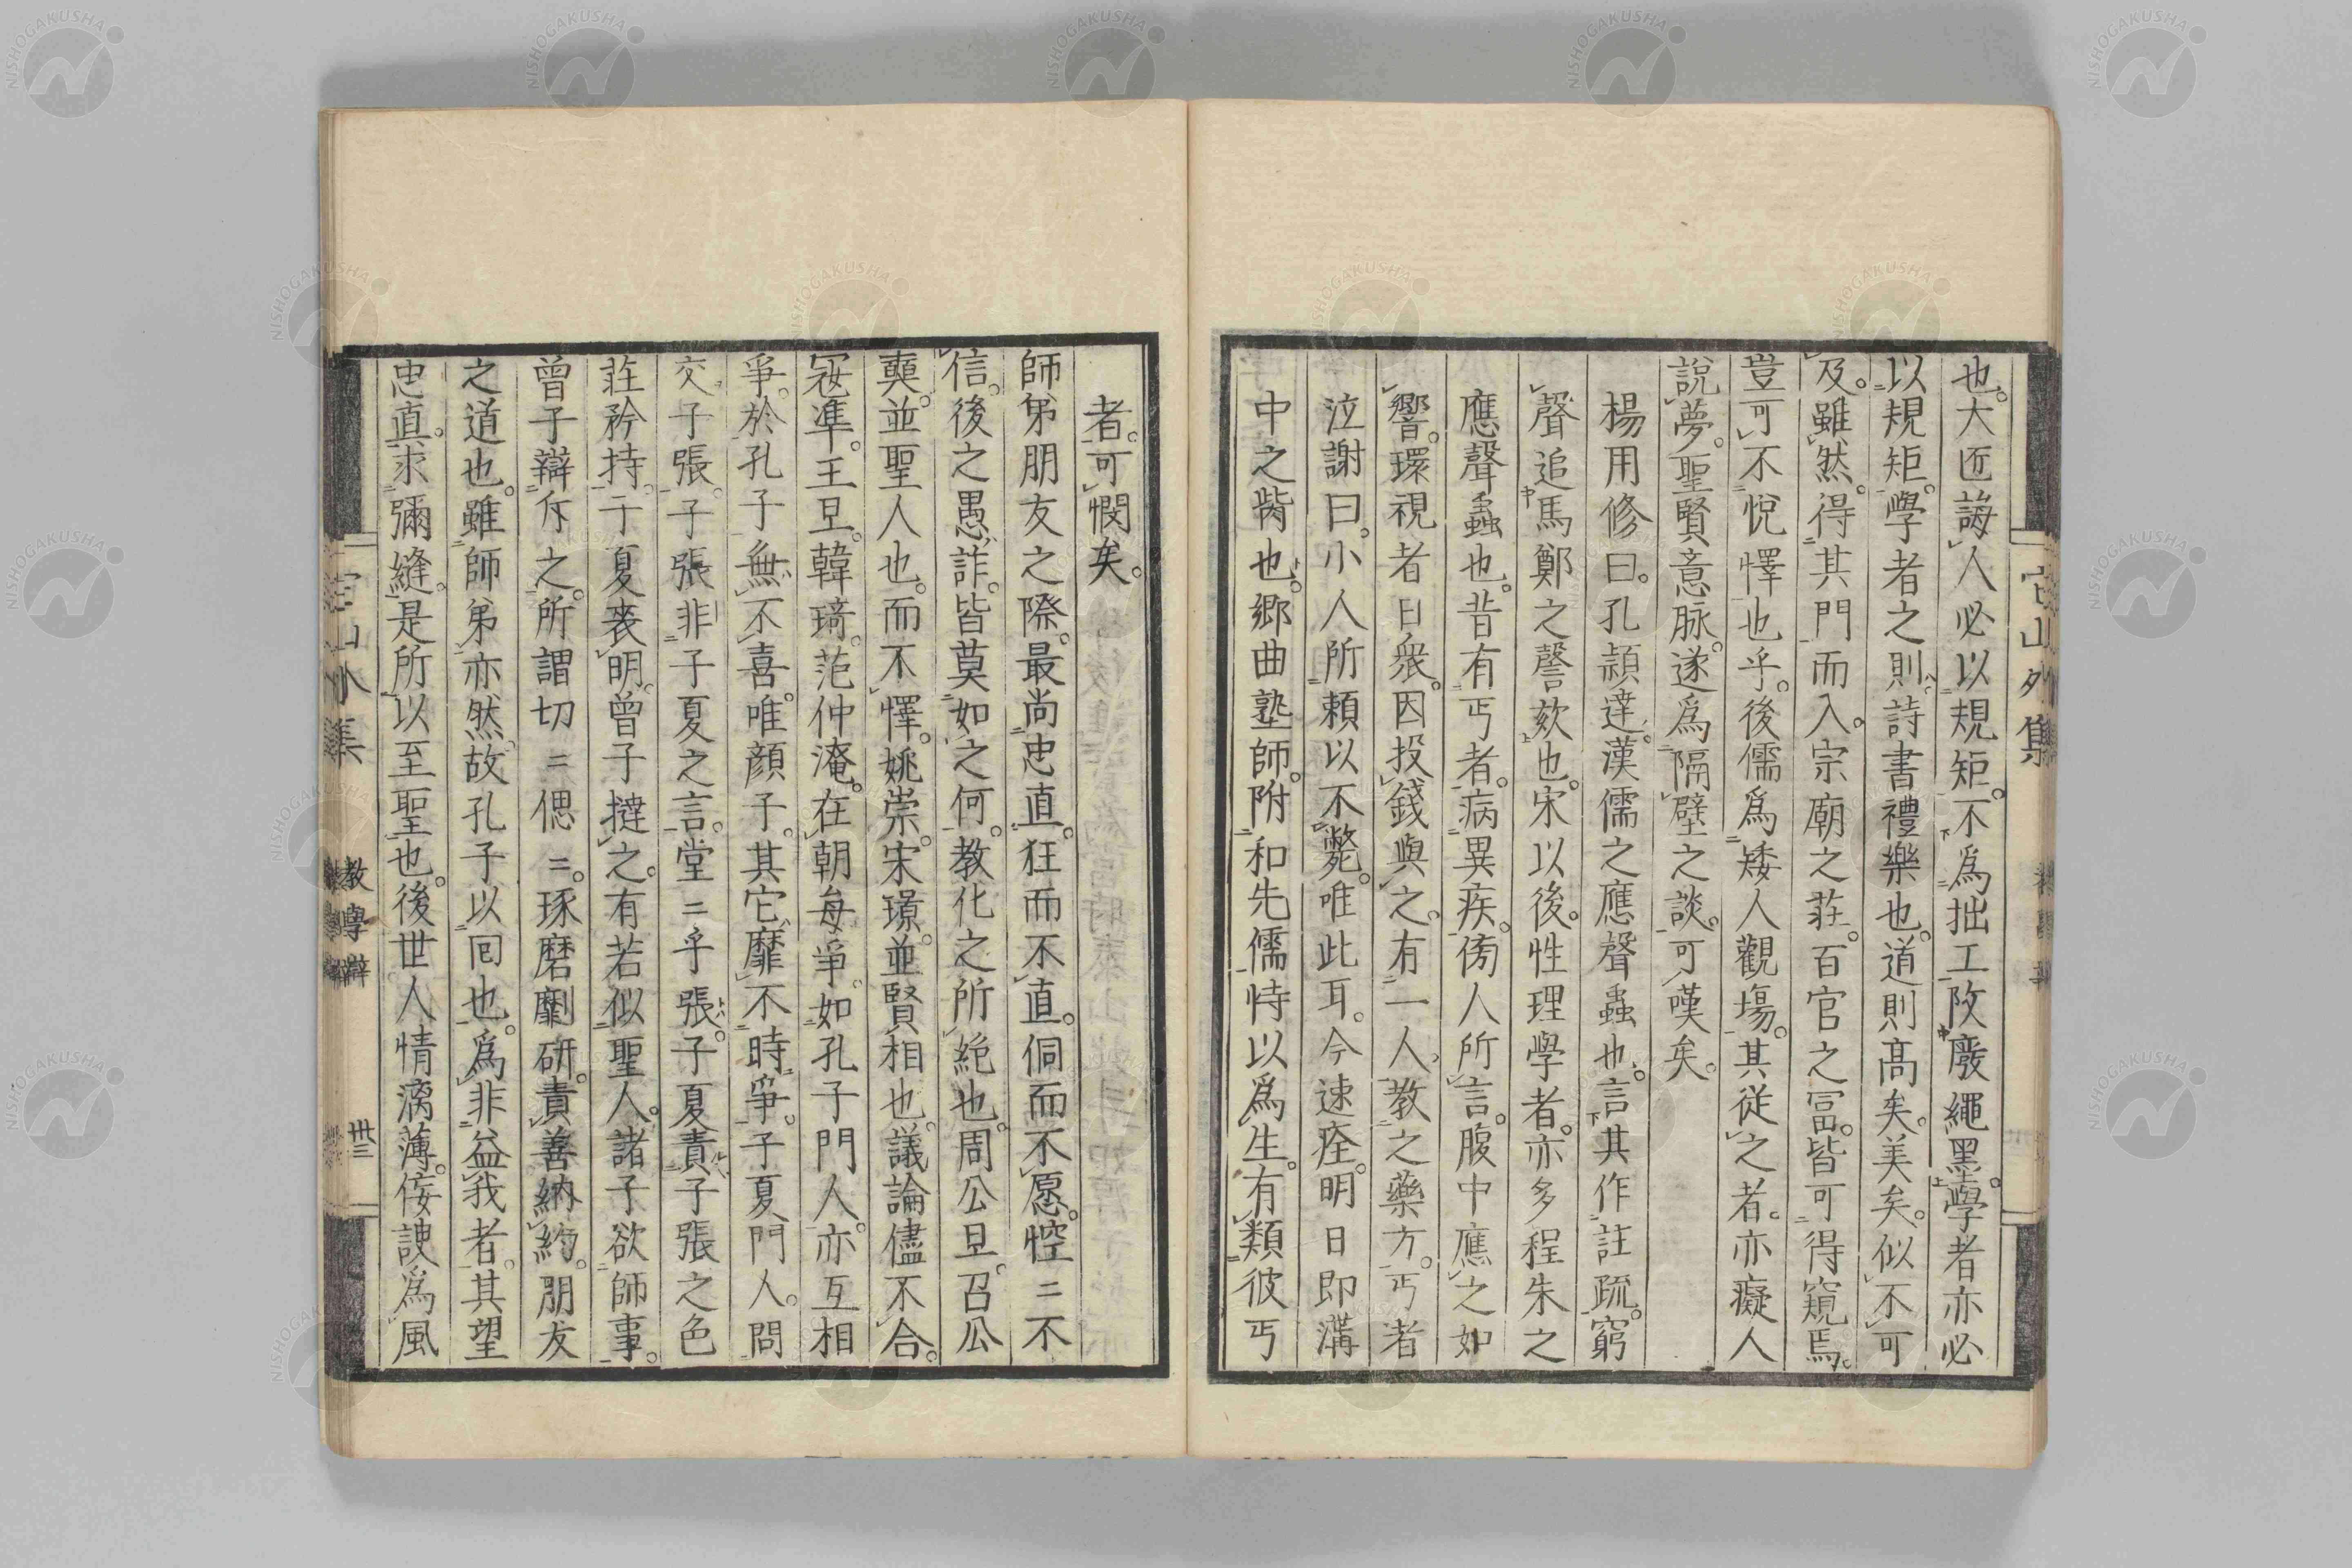 也。大匠誨人必以規矩。不爲拙工攺廢繩墨。學者亦必
以規矩。學者之則。詩書禮樂也。道則髙矣。美矣。似不可
及。雖然。得其門而入。宗廟之莊。百官之冨。皆可得窺焉。
豈可不悅懌也乎。後儒爲矮人觀塲。其從之者。亦癡人
說夢。聖賢意脉。遂爲隔壁之談。可嘆矣。
楊用修曰。孔頴達。漢儒之應聲蟲也。言其作註疏。窮
聲追馬鄭之謦欬也。宋以後。性理學者。亦多程朱之
應聲蟲也。昔有丐者。病異疾。傍人所言。腹中應之如
響。環視者日衆。因投錢與之。有一人。教之藥方。丐者
泣謝曰。小人所頼以不斃。唯此耳。今速痊。明日即溝
中之胔也。鄉曲塾師。附和先儒恃以爲生。有類彼丐
者。可憫矣。
師弟朋友之際。最尚忠直。狂而不直。侗而不愿。悾〻不
信。後之愚詐。皆莫如之何。教化之所絕也。周公旦。召公
奭。並聖人也。而不懌。姚崇。宋璟。並賢相也。議論儘不合。
冦準。王旦。韓琦。范仲淹。在朝每爭。如孔子門人。亦互相
爭。於孔子無不喜。唯顔子。其它靡不時爭。子夏門人。問
交子張。子張非子夏之言。堂〻乎張。子夏責子張之色
莊矜持。子夏喪明。曾子撻之。有若似聖人。諸子欲師事。
曾子辯斥之。所謂切〻偲〻。琢磨劘研。責善納約。朋友
之道也。雖師弟亦然。故孔子以囘也。爲非益我者。其望
忠直。求彌縫。是所以至聖也。後世人情漓薄。侫諛爲風
教學辯
卅三